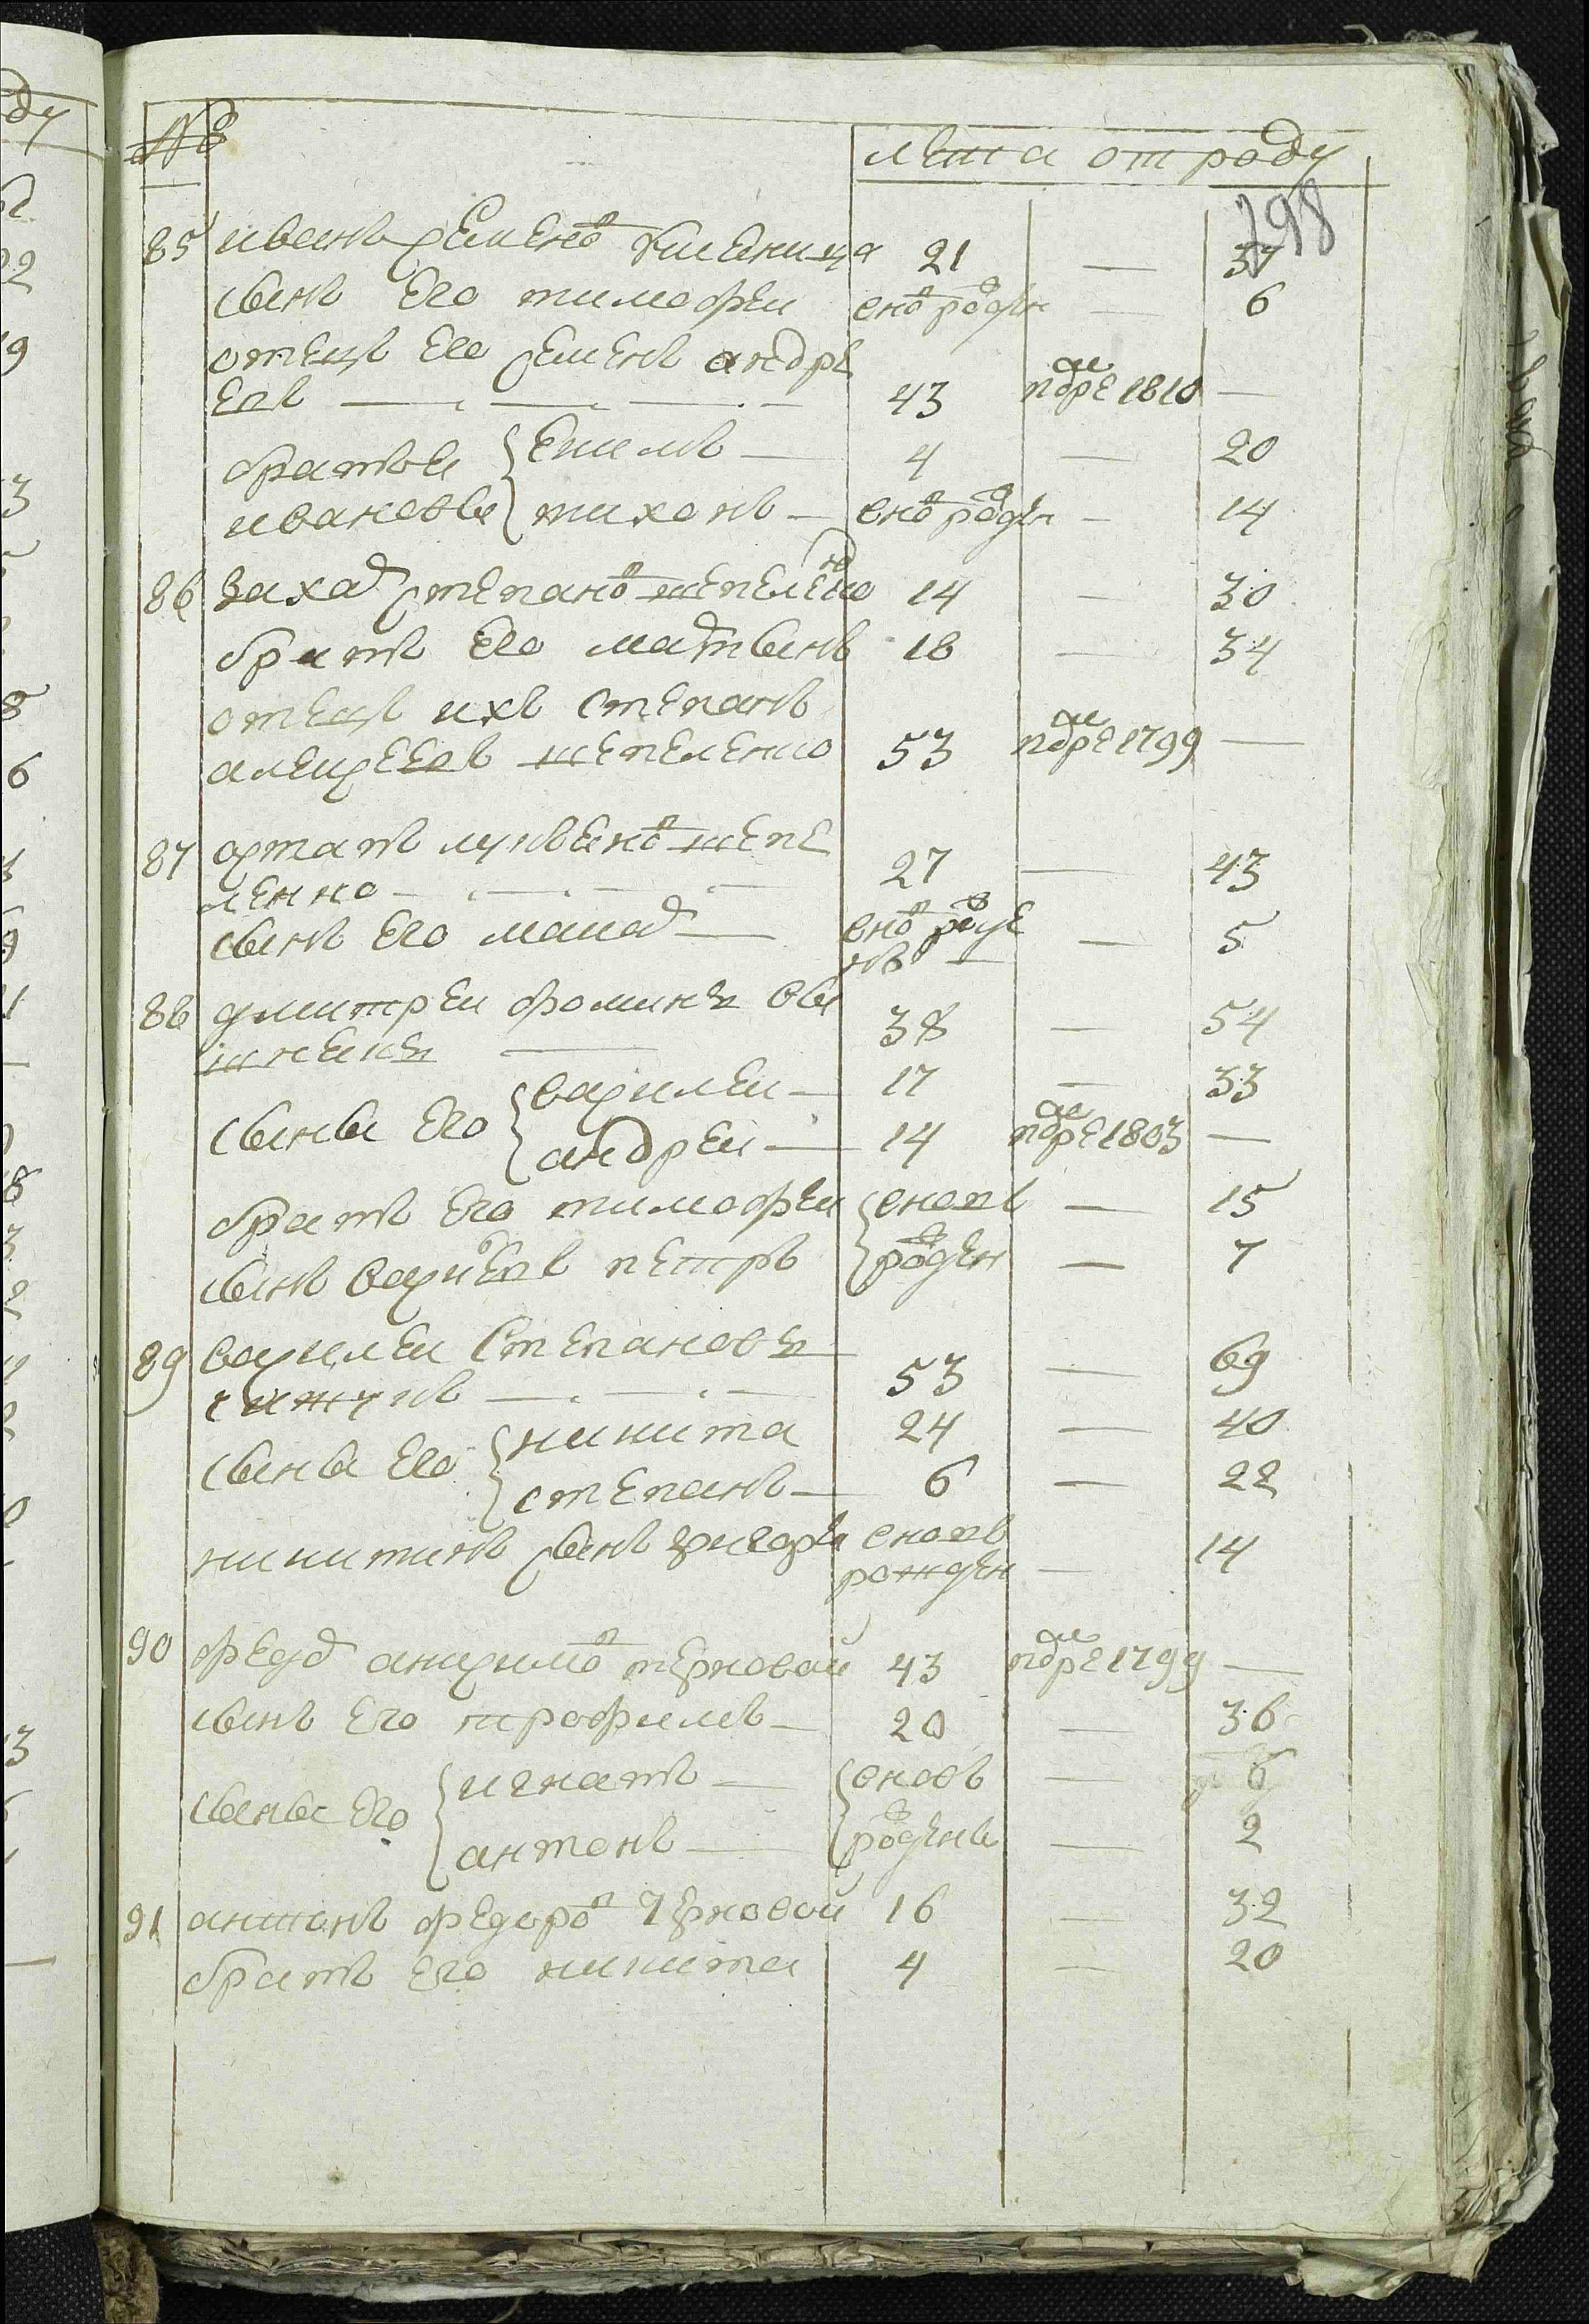 № лета отроду
198
85 иванъ семенов кисеница 21 — 37
сынъ его тимофеи внов рожден — 6
отецъ его семенъ андре
евъ — 43 помре 1810 —
братьи ивановы { екимъ — 4 — 20
тихонъ — внов рожден — 14
86 захар степанов шепеленко 14 — 30
братъ его мартынъ 18 — 34
отецъ ихъ степанъ
алексеевъ шепеленко 53 помре 1799 —
87 остапъ лукьенов шепе
ленко — 27 — 43
сынъ его макар — внов рожде
нъ — 5
88 дмитреи фоминъ
38 — 54
сыны его { василеи — 17 — 33
андреи — 14 помре 1803 —
братъ его тимофеи { вновъ — 15
сынъ василев петръ рожден — 7
89 василеи степановъ
чижукъ — 53 — 69
сыны его { никита 24 — 40
степанъ — 6 — 22
никитинъ сынъ григореи вновъ
рожден — 14
90 федор анисимов терновой 43 помре 1799 —
сынъ его трофимъ — 20 — 36
сыны его { игнатъ — { вновъ — 6
антонъ — рождены — 2
91 антонъ федоров терновой 16 — 32
братъ его никита 4 — 20